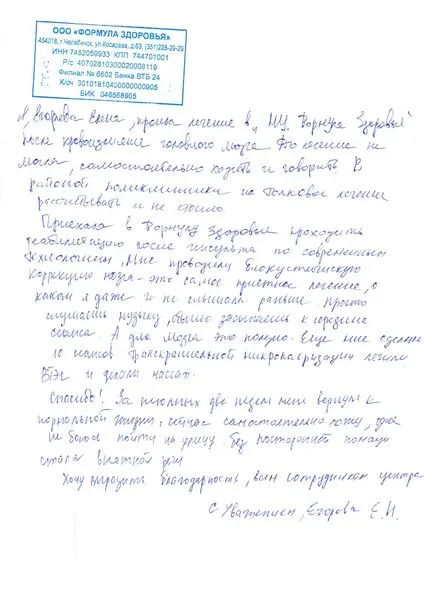 ООО «ФОРМУЛА ЗДОРОВЬЯ»
454018, г.Челябинск, ул.Косарева, д.63, (351)225-29-29
ИНН 7452059933 КПП 744701001
Р/с 40702810300020008119
Филиал № 6602 Банка ВТБ 24
К/сч 30101810400000000905
БИК 046568905
Я, Егорова Елена, прошла лечение в "МЦ Формула Здоровья"
после кровоизлияние головного мозга. До лечение не
могла, самостоятельно ходить и говорить. В
районой поликлинники на толковое лечение
рассчитывать и не стоило.
Приехала в Формулу Здоровья проходить
реабилитацию после инсульта по современным
технологиям. Мне проводили биоакустическую
коррекцию мозга - это самое приятное лечение, о
каком я даже и не слышала раньше. Просто
слушаешь музыку, обычно засыпаешь к середине
сеанса. А для мозга это полезно. Еще мне сделали
10 сеансов Транскраниальной микрополяризации лечили
и делали массаж.
Спасибо! За неполных две недели меня вернули к
нормальной жизни, сейчас самостоятельно хожу, даже
не боюсь пойти на улицу без посторонней помощи
стала внятной речь
Хочу выразить благодарность, всем сотрудникам центра
С Уважением, Егорова Е.И.